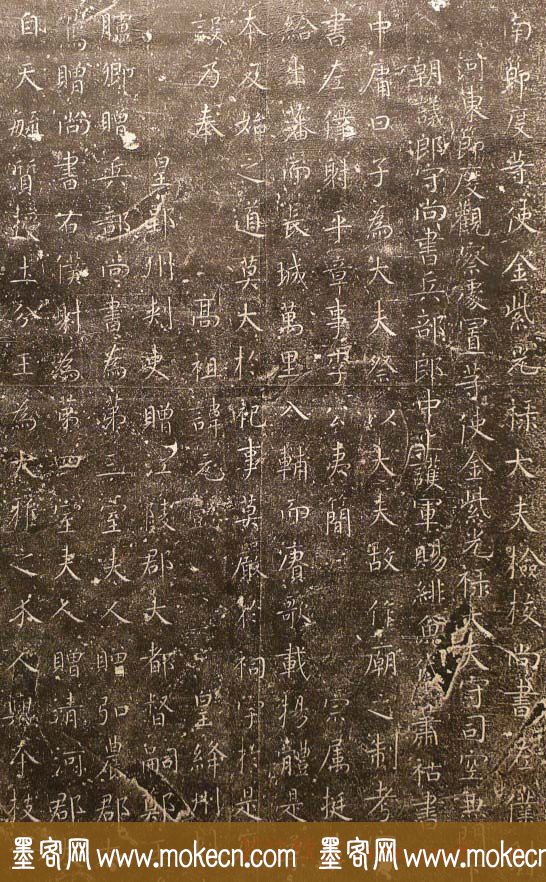 南節度等使金紫光祿大夫檢校尚書左僕
河東節度觀察處置等使金紫光祿大夫守司空兼門
朝議郎守尚書兵部郎中上護軍賜緋魚袋蕭祜書
中庸曰子為大夫祭以大夫故作廟之制考
書左僕射平章事李公夷簡 宗属挺
給出藩而長城萬里入輔而賡歌載揚體是
本及始之道莫大於祀事莫嚴於祠宇於是
設乃奉 高祖諱元懿 皇絳州刺
皇鄭州刺史贈江陵郡大都督嗣鄭
臚卿贈兵部尚書為第三室夫人贈弘農郡
篤贈尚書右僕射為第四室夫人贈清河郡
自天毓質 土分王為大雅之 人興本枝
墨客网 www.mokecn.com 墨客网 www.mokecn.com